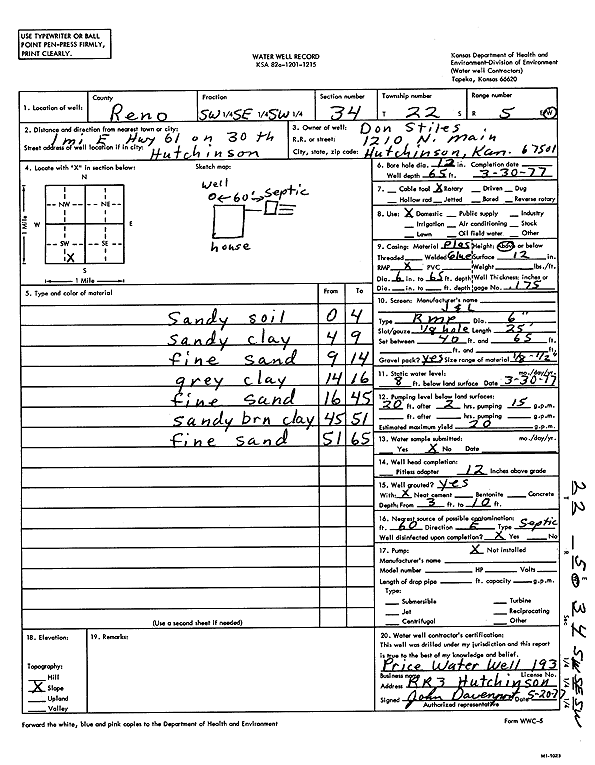 USE TYPEWRITER OR BALL
POINT PEN-PRESS FIRMLY,
PRINT CLEARLY.
WATER WELL RECORD
KSA 82a-1201-1215
Kansas Department of Health and
Environment-Division of Environment
(Water well Contractors)
Topeka, Kansas 66620
1. Location of well: County Reno Fraction SW 1/4 SE 1/4 SW 1/4 Section number 34 Township number T 22 S Range number R 5 E/W
2. Distance and direction from nearest town or city: 1 mi E Hwy 61 on 30 th
Street address of well location if in city: Hutchinson
3. Owner of well: Don Stiles
R.R. or street: 1210 N. main
City, state, zip code: Hutchinson, Kan. 67501
4. Locate with "X" in section below:
N
NW NE
W E
SW SE
X
S
1 Mile
1 Mile
Sketch map:
well
0 ← 60' → Septic
house
6. Bore hole dia. 12 in. Completion date
Well depth 65 ft. 3-30-77
7. Cable tool X Rotary Driven Dug
Hollow rod Jetted Bored Reverse rotary
8. Use: X Domestic Public supply Industry
Irrigation Air conditioning Stock
Lawn Oil field water Other
9. Casing: Material Plas Height: Above or below
Threaded Welded Glue Surface 12 in.
RMP X PVC Weight lbs./ft.
Dia. 6 in. to 65 ft. depth Wall Thickness: inches or
Dia. in. to ft. depth gage No. .175
5. Type and color of material From To
Sandy soil 0 4
Sandy clay 4 9
fine sand 9 14
grey clay 14 16
fine sand 16 45
sandy brn clay 45 51
fine sand 51 65
(Use a second sheet if needed)
10. Screen: Manufacturer's name
J & L
Type Rmp Dia. 6"
Slot/gauze 1/8 hole Length 25'
Set between 40 ft. and 65 ft.
ft. and ft.
Gravel pack? yes Size range of material 1/8-1/2"
11. Static water level: mo./day/yr.
8 ft. below land surface Date 3-30-77
12. Pumping level below land surfaces:
20 ft. after 2 hrs. pumping 15 g.p.m.
ft. after hrs. pumping g.p.m.
Estimated maximum yield 20 g.p.m.
13. Water sample submitted: mo./day/yr.
Yes X No Date
14. Well head completion:
Pitless adapter 12 Inches above grade
15. Well grouted? yes
With: X Neat cement Bentonite Concrete
Depth: From 3 ft. to 10 ft.
16. Nearest source of possible contamination:
ft. 60 Direction E Type Septic
Well disinfected upon completion? X Yes No
17. Pump: X Not installed
Manufacturer's name
Model number HP Volts
Length of drop pipe ft. capacity g.p.m.
Type:
Submersible Turbine
Jet Reciprocating
Centrifugal Other
18. Elevation:
Topography:
Hill
X Slope
Upland
Valley
19. Remarks:
20. Water well contractor's certification:
This well was drilled under my jurisdiction and this report
is true to the best of my knowledge and belief.
Price Water Well 193
Business name License No.
Address RR3 Hutchinson
Signed John Davenport Date 5-20-77
Authorized representative
Forward the white, blue and pink copies to the Department of Health and Environment
Form WWC-5
T 22 R 5 E W Sec 34 SW 1/4 SE 1/4 SW 1/4